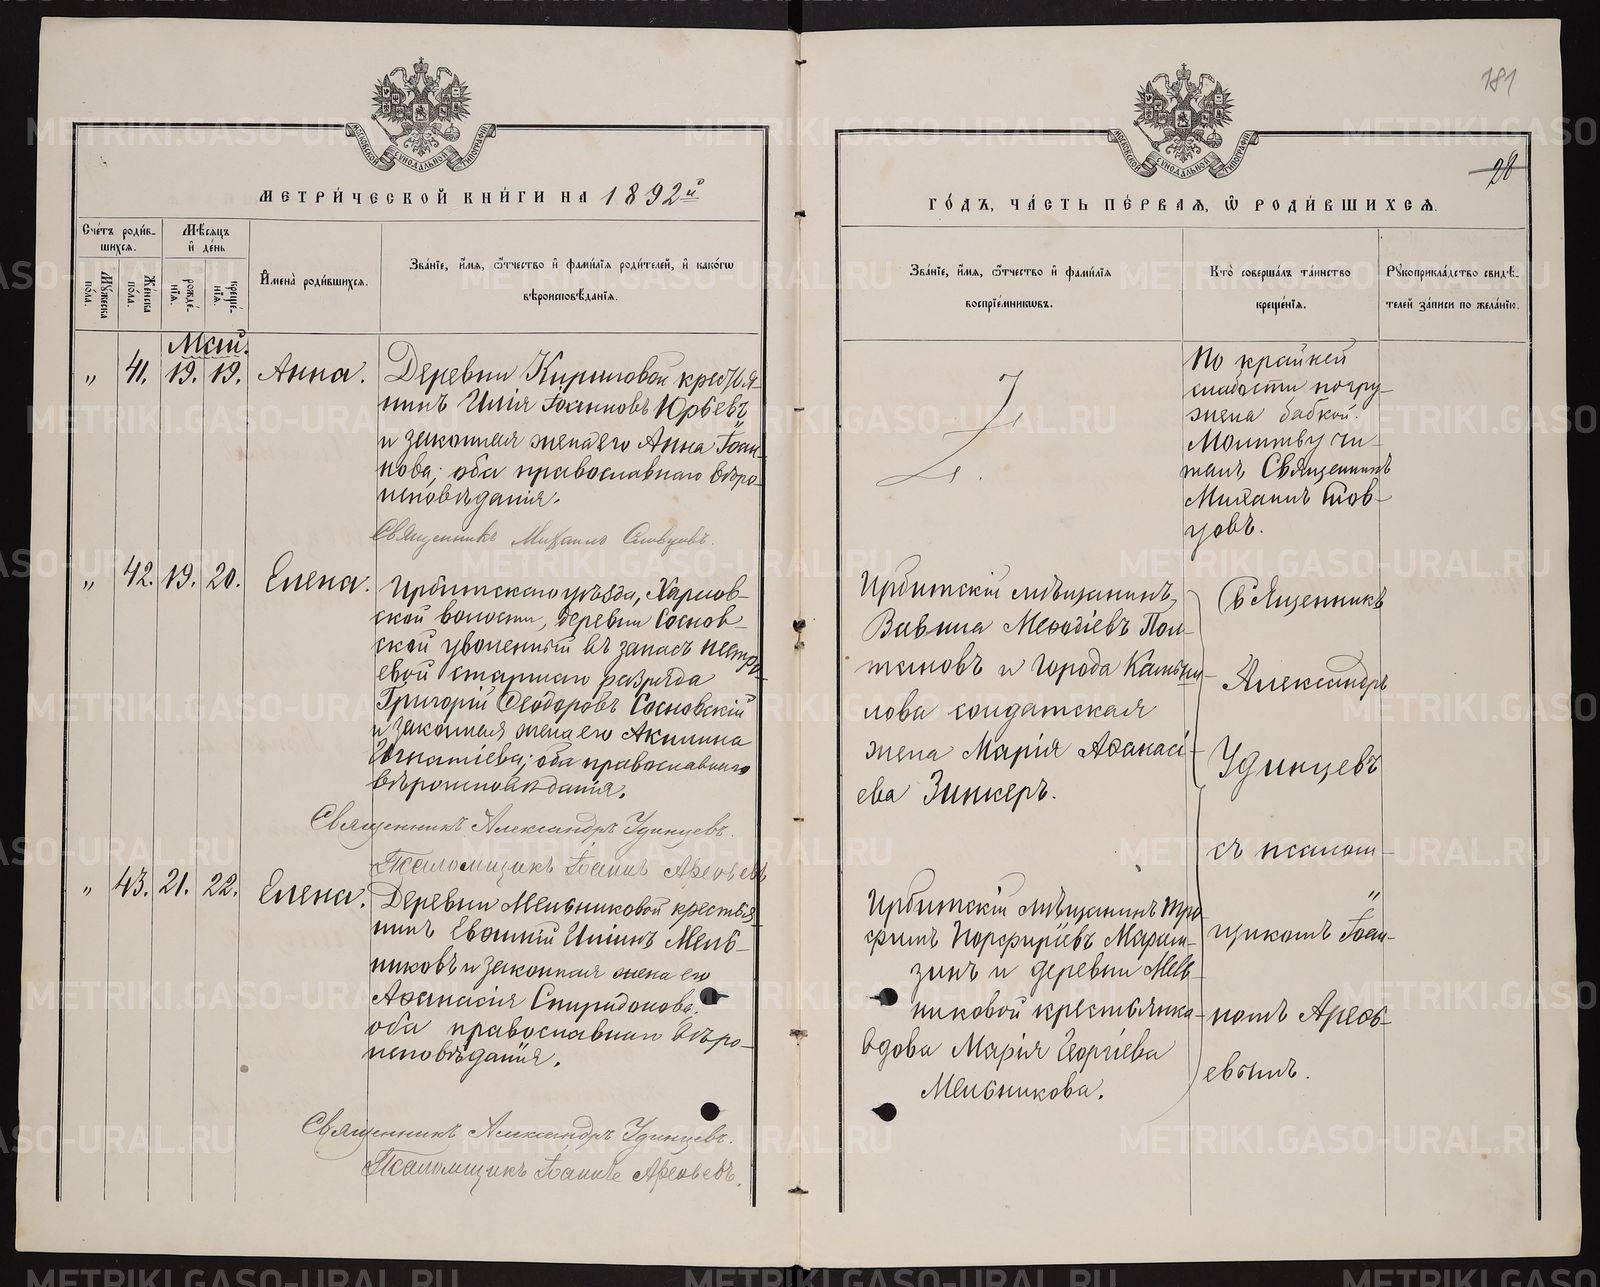 МОСКОВСКОЙ СѴНОДАЛЬНОЙ ТИПОГРАФІИ
МЕТРИ́ЧЕСКОЙ КНИ́ГИ НА 1892й
Сче́тъ роди́в-
шихсѧ.
Мꙋ́жеска по́ла.
Же́нска по́ла.
Мѣ́сѧцъ
и҆ де́нь
рожде́-
нїѧ.
креще́-
нїѧ.
И҆мена̀ роди́вшихсѧ.
Зва́нїе, и҆́мѧ, ѻ҆́тчество и҆ фамѝлїѧ роди́телей, и҆ како́гѡ
вѣроисповѣ́данїѧ.
Май.
" 41. 19. 19. Анна.
Деревни Кириловой кресть-я-
нинъ Илія Іоанновъ Юрьевъ
и законная жена его Анна Іоан-
нова; оба православнаго вѣро-
исповѣданія.
Священникъ Михаилъ Словцовъ.
" 42. 19. 20. Елена.
Ирбитскаго уѣзда, Харлов-
ской волости, деревни Соснов-
ской уволенный въ запасъ нестро-
евой старшаго разряда
Григорій Ѳеодоровъ Сосновскій
и законная жена его Акилина
Игнатіева; оба православнаго
вѣроисповѣданія.
Священникъ Александръ Удинцевъ.
Псаломщикъ Іоаннъ Арефьевъ
" 43. 21. 22. Елена.
Деревни Мельниковой крестья-
нинъ Евѳимій Иліинъ Мель-
никовъ и законная жена его
Аѳанасія Спиридонова;
оба православнаго вѣро-
исповѣданія.
Священникъ Александръ Удинцевъ.
Псаломщикъ Іоаннъ Арефьевъ.
181
28
МОСКОВСКОЙ СѴНОДАЛЬНОЙ ТИПОГРАФІИ
ГО́ДЪ, ЧА́СТЬ ПЕ́РВАЯ, Ѡ҆ РОДИ́ВШИХСѦ.
Зва́нїе, и҆́мѧ, ѻ҆́тчество и҆ фамѝлїѧ
воспрїе́мникѡвъ.
Кто̀ соверша́лъ та́инство
креще́нїѧ.
Рꙋкоприкла́дство свидѣ́-
телей за́писи по жела́нїю.
По крайней
слабости погру-
жена бабкой.
Молитву чи-
талъ Священникъ
Михаилъ Слов-
цовъ.
Ирбитскій мѣщанинъ
Вавила Меѳодіевъ Пол-
тановъ и города Камыш-
лова солдатская
жена Марія Аѳанасі-
ева Зинкеръ.
Священникъ
Александръ
Удинцевъ
съ псалом-
щикомъ Іоан-
номъ Арефь-
евымъ.
Ирбитскій мѣщанинъ Тро-
фимъ Порфиріевъ Мурам-
зинъ и деревни Мель-
никовой крестьянка
вдова Марія Георгіева
Мельникова.
METRIKI.GASO-URAL.RU